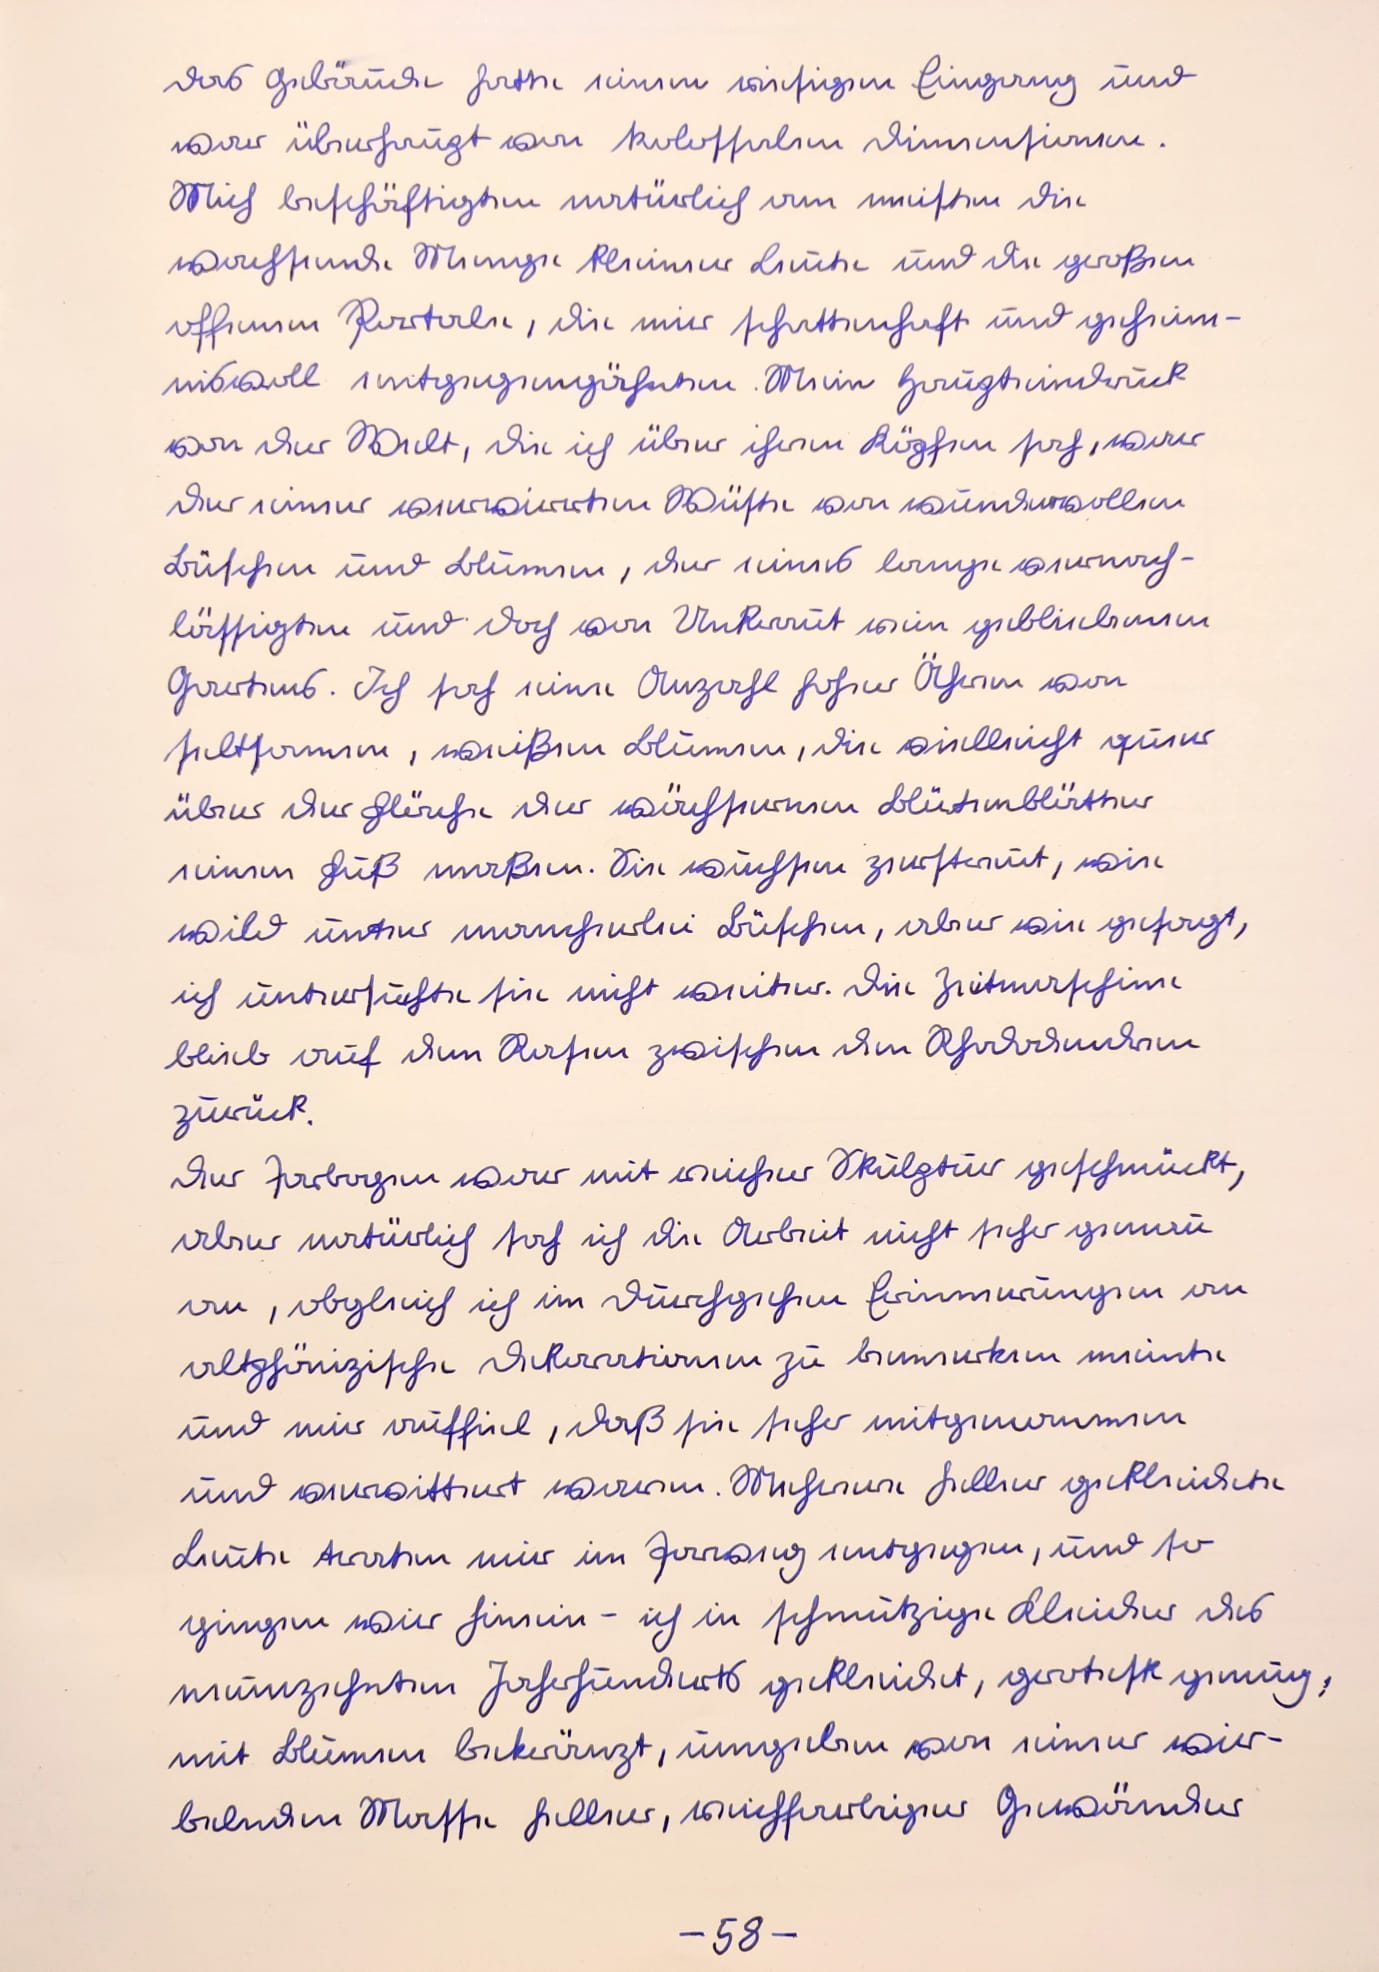 Das Gebäude hatte einen riesigen Eingang und
war überhaupt von kolossalen Dimensionen.
Mich beschäftigten natürlich am meisten die
wachsende Menge kleiner Leute und die großen
offenen Portale, die mir schattenhaft und geheim-
nisvoll entgegengähnten. Mein Haupteindruck
von der Welt, die ich über ihren Köpfen sah, war
der einer verwirrten Wüste von wundervollen
Büschen und Blumen, der eines lange vernach-
lässigten und doch von Unkraut rein gebliebenen
Gartens. Ich sah eine Anzahl hoher Ähren von
seltsamen, weißen Blumen, die vielleicht quer
über der Fläche der wächsernen Blütenblätter
einen Fuß maßen. Sie wuchsen zerstreut, wie
wild unter mancherlei Büschen, aber wie gesagt,
ich untersuchte sie nicht weiter. Die Zeitmaschine
blieb auf dem Rasen zwischen den Rhododendren
zurück.
Der Torbogen war mit reicher Skulptur geschmückt,
aber natürlich sah ich die Arbeit nicht sehr genau
an, obgleich ich im Durchgehen Erinnerungen an
altphönizische Dekorationen zu bemerken meinte
und mir auffiel, daß sie sehr mitgenommen
und verwittert waren. Mehrere heller gekleidete
Leute traten mir im Torweg entgegen, und so
gingen wir hinein – ich in schmutzige Kleider des
neunzehnten Jahrhunderts gekleidet, grotesk genug,
mit Blumen bekränzt, umgeben von einer wir-
belnden Masse heller, weichfarbiger Gewänder
–58–